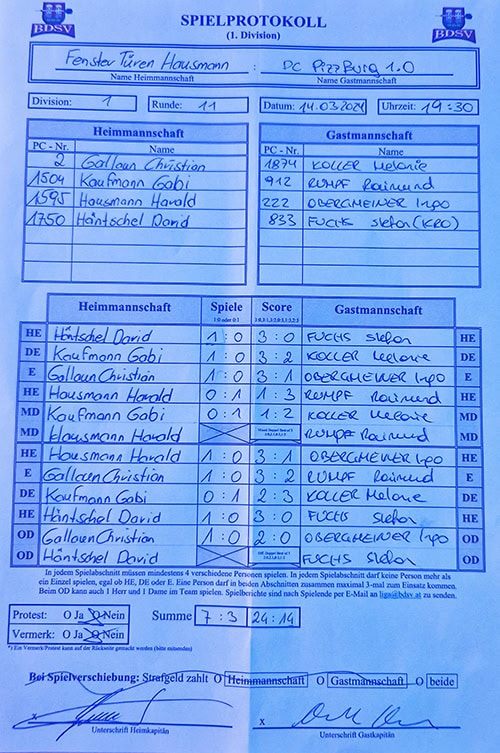 BDSV
SPIELPROTOKOLL
BDSV
(1. Division)
Fenster Türen Hausmann : DC PizzBurg 1.0
Name Heimmannschaft Name Gastmannschaft
Division: 1 Runde: 11 Datum: 14.03.2024 Uhrzeit: 19:30
Heimmannschaft Gastmannschaft
PC - Nr. Name PC - Nr. Name
2 Gallaun Christian 1874 KOLLER Melanie
1504 Kaufmann Gabi 912 RUMPF Raimund
1595 Hausmann Harald 222 OBERGMEINER Ingo
1750 Häntschel David 833 FUCHS Stefan (KRO)
Heimmannschaft Spiele Score Gastmannschaft
1:0 oder 0:1 3:0,3:1,3:2,0:3,1:3,2:3
HE Häntschel David 1 : 0 3 : 0 FUCHS Stefan HE
DE Kaufmann Gabi 1 : 0 3 : 2 KOLLER Melanie DE
E Gallaun Christian 1 : 0 3 : 1 OBERGMEINER Ingo E
HE Hausmann Harald 0 : 1 1 : 3 RUMPF Raimund HE
MD Kaufmann Gabi 0 : 1 1 : 2 KOLLER Melanie MD
MD Hausmann Harald RUMPF Raimund MD
HE Hausmann Harald 1 : 0 3 : 1 OBERGMEINER Ingo HE
E Gallaun Christian 1 : 0 3 : 2 RUMPF Raimund E
DE Kaufmann Gabi 0 : 1 2 : 3 KOLLER Melanie DE
HE Häntschel David 1 : 0 3 : 0 FUCHS Stefan HE
OD Gallaun Christian 1 : 0 2 : 0 OBERGMEINER Ingo OD
OD Häntschel David FUCHS Stefan OD
In jedem Spielabschnitt müssen mindestens 4 verschiedene Personen spielen. In jedem Spielabschnitt darf keine Person mehr als
ein Einzel spielen, egal ob HE, DE oder E. Eine Person darf in beiden Abschnitten zusammen maximal 3-mal zum Einsatz kommen.
Beim OD kann auch 1 Herr und 1 Dame im Team spielen. Spielberichte sind nach Spielende per E-Mail an liga@bdsv.at zu senden.
Protest: O Ja O Nein Summe 7 : 3 24 : 14
Vermerk: O Ja O Nein
*) Ein Vermerk/Protest kann auf der Rückseite gemacht werden (bitte mitsenden)
Bei Spielverschiebung: Strafgeld zahlt O Heimmannschaft O Gastmannschaft O beide
x x
Unterschrift Heimkapitän Unterschrift Gastkapitän